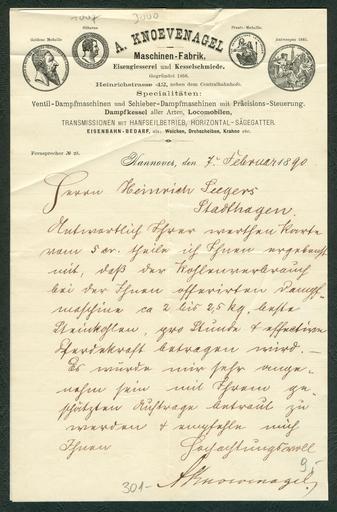 1007 3000
Goldene Medaille
Silberne
Staats-Medaille.
Antwerpen 1885.
A. KNOEVENAGEL
Maschinen-Fabrik,
Eisengiesserei und Kesselschmiede.
Gegründet 1856.
Heinrichstrasse 42, neben dem Centralbahnhofe.
Specialitäten:
Ventil-Dampfmaschinen und Schieber-Dampfmaschinen mit Präcisions-Steuerung.
Dampfkessel aller Arten, Locomobilen,
TRANSMISSIONEN MIT HANFSEILBETRIEB, HORIZONTAL-SÄGEGATTER.
EISENBAHN-BEDARF, als: Weichen, Drehscheiben, Krahne etc.
Fernsprecher № 25.
Hannover, den 7. Februar 1890
Herrn Heinrich Seegers
Stadthagen.
Antwortlich Ihrer werthen Karte
vom 5 cr. theile ich Ihnen ergebenst
mit, daß der Kohlenverbrauch
bei der Ihnen offerirten Dampf-
maschine ca 2 bis 2,5 kg. beste
Steinkohlen, pro Stunde & effective
Pferdekraft betragen wird. —
Es würde mir sehr ange-
nehm sein mit Ihrem ge-
schätzten Auftrage betraut zu
werden & empfehle mich
Ihnen Hochachtungsvoll
AKnoevenagel.
301- 9,-